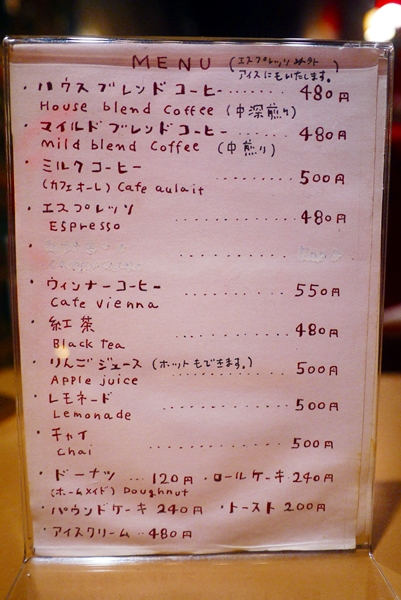 MENU (エスプレッソ以外
アイスにもいたします。)
・ハウスブレンドコーヒー ……… 480円
House blend Coffee (中深煎り)
・マイルドブレンドコーヒー ……… 480円
mild blend Coffee (中煎り)
・ミルクコーヒー ……… 500円
(カフェオーレ) Cafe aulait
・エスプレッソ ……… 480円
ESpresso
・ウィンナーコーヒー ……… 550円
Cafe vienna
・紅茶 ……… 480円
Black tea
・りんごジュース (ホットもできます。) ……… 500円
Apple juice
・レモネード ……… 500円
Lemonade
・チャイ ……… 500円
Chai
・ドーナツ … 120円 ・ロールケーキ 240円
(ホームメイド) Doughnut
・パウンドケーキ 240円 ・トースト 200円
・アイスクリーム … 480円